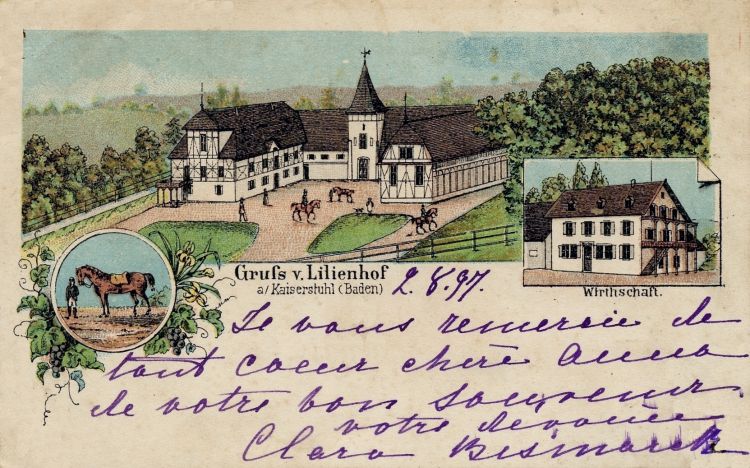 Gruß v. Lilienhof
a/ Kaiserstuhl (Baden)
2.8.97.
Wirthschaft.
Je vous remercie de
tout coeur chère Anna
de votre bon souvenir
votre devouée
Clara Bismarck